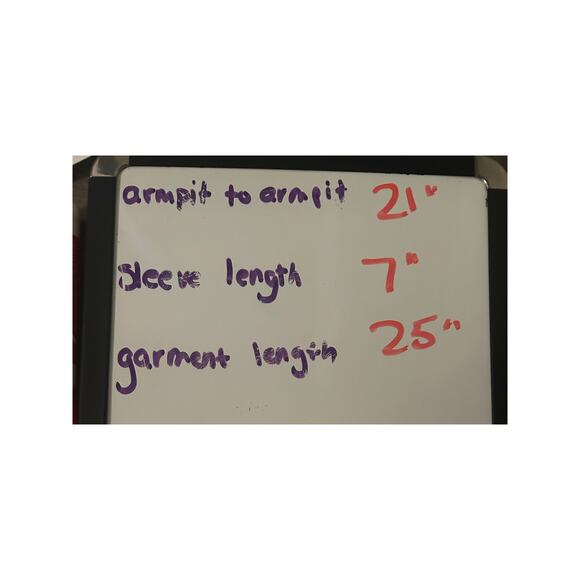 armpit to armpit 21"
sleeve length 7"
garment length 25"